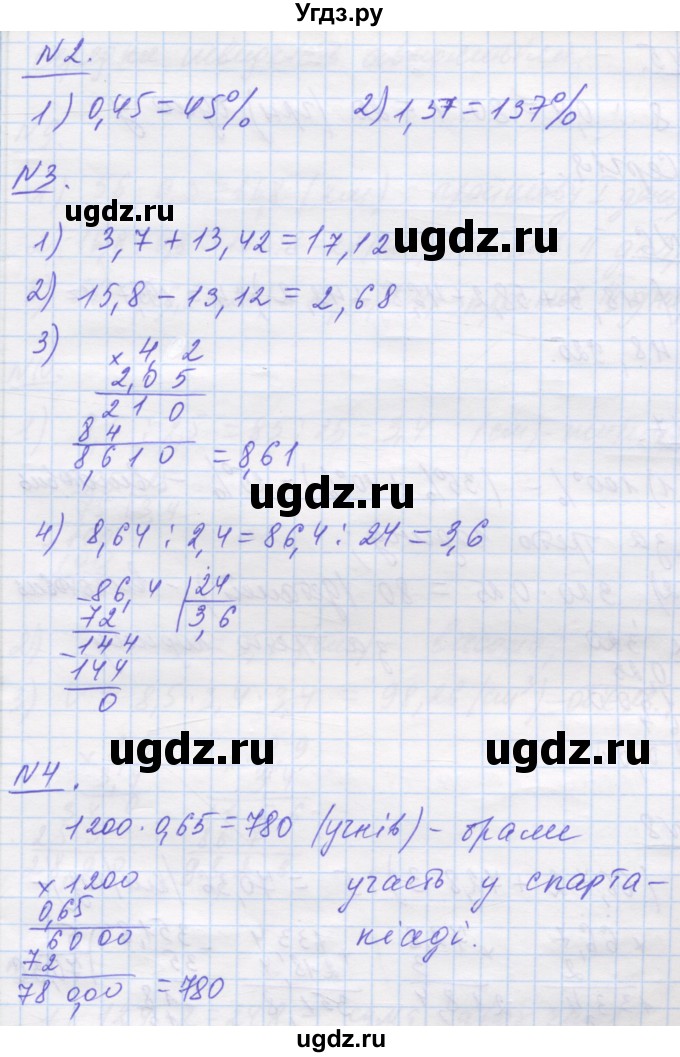 Угдз.ру
N2.
1) 0,45 = 45% 2) 1,37 = 137%
N3.
ugdz.ru ugdz.ru
1) 3,7 + 13,42 = 17,12
2) 15,8 − 13,12 = 2,68
3) × 4,2
2,05
210
84
8,610 = 8,61
ugdz.ru
4) 8,64 : 2,4 = 86,4 : 24 = 3,6
−86,4 24
72 3,6
−144
144
0
ugdz.ru ugdz.ru
N4.
1200 · 0,65 = 780 (учнів) – брали
участь у спарта-
кіаді.
×1200
0,65
6000
72
78 0,00 = 780
ugdz.ru